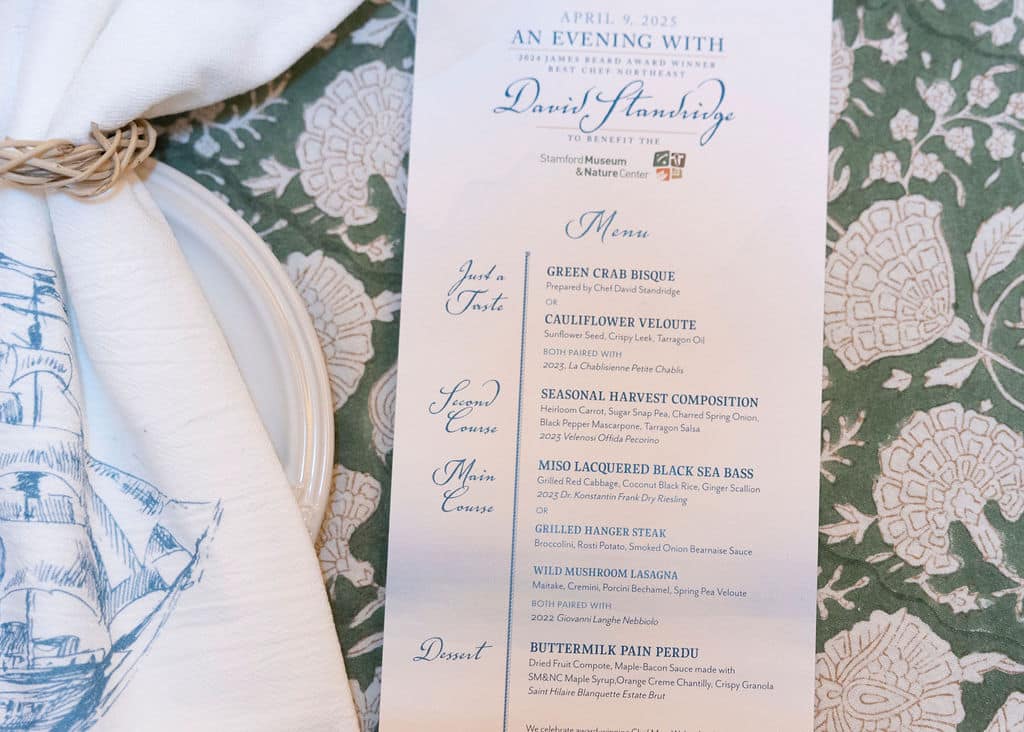 APRIL 9, 2025
AN EVENING WITH
2024 JAMES BEARD AWARD WINNER
BEST CHEF NORTHEAST
David Standridge
TO BENEFIT THE
Stamford Museum
& Nature Center
Menu
Just a
Taste
GREEN CRAB BISQUE
Prepared by Chef David Standridge
OR
CAULIFLOWER VELOUTE
Sunflower Seed, Crispy Leek, Tarragon Oil
BOTH PAIRED WITH
2023, La Chablisienne Petite Chablis
Second
Course
SEASONAL HARVEST COMPOSITION
Heirloom Carrot, Sugar Snap Pea, Charred Spring Onion,
Black Pepper Mascarpone, Tarragon Salsa
2023 Velenosi Offida Pecorino
Main
Course
MISO LACQUERED BLACK SEA BASS
Grilled Red Cabbage, Coconut Black Rice, Ginger Scallion
2023 Dr. Konstantin Frank Dry Riesling
OR
GRILLED HANGER STEAK
Broccolini, Rosti Potato, Smoked Onion Bearnaise Sauce
WILD MUSHROOM LASAGNA
Maitake, Cremini, Porcini Bechamel, Spring Pea Veloute
BOTH PAIRED WITH
2022 Giovanni Langhe Nebbiolo
Dessert
BUTTERMILK PAIN PERDU
Dried Fruit Compote, Maple-Bacon Sauce made with
SM&NC Maple Syrup,Orange Creme Chantilly, Crispy Granola
Saint Hilaire Blanquette Estate Brut
We celebrate award-winning Chef